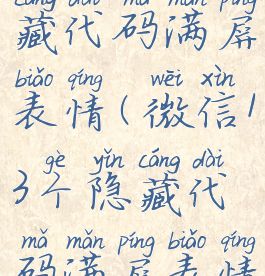 cáng dài mǎ mǎn píng
藏代码满屏
biǎo qíng wēi xìn
表情(微信1
gè yǐn cáng dài
3个隐藏代
mǎ mǎn píng biǎo qíng
码满屏表情